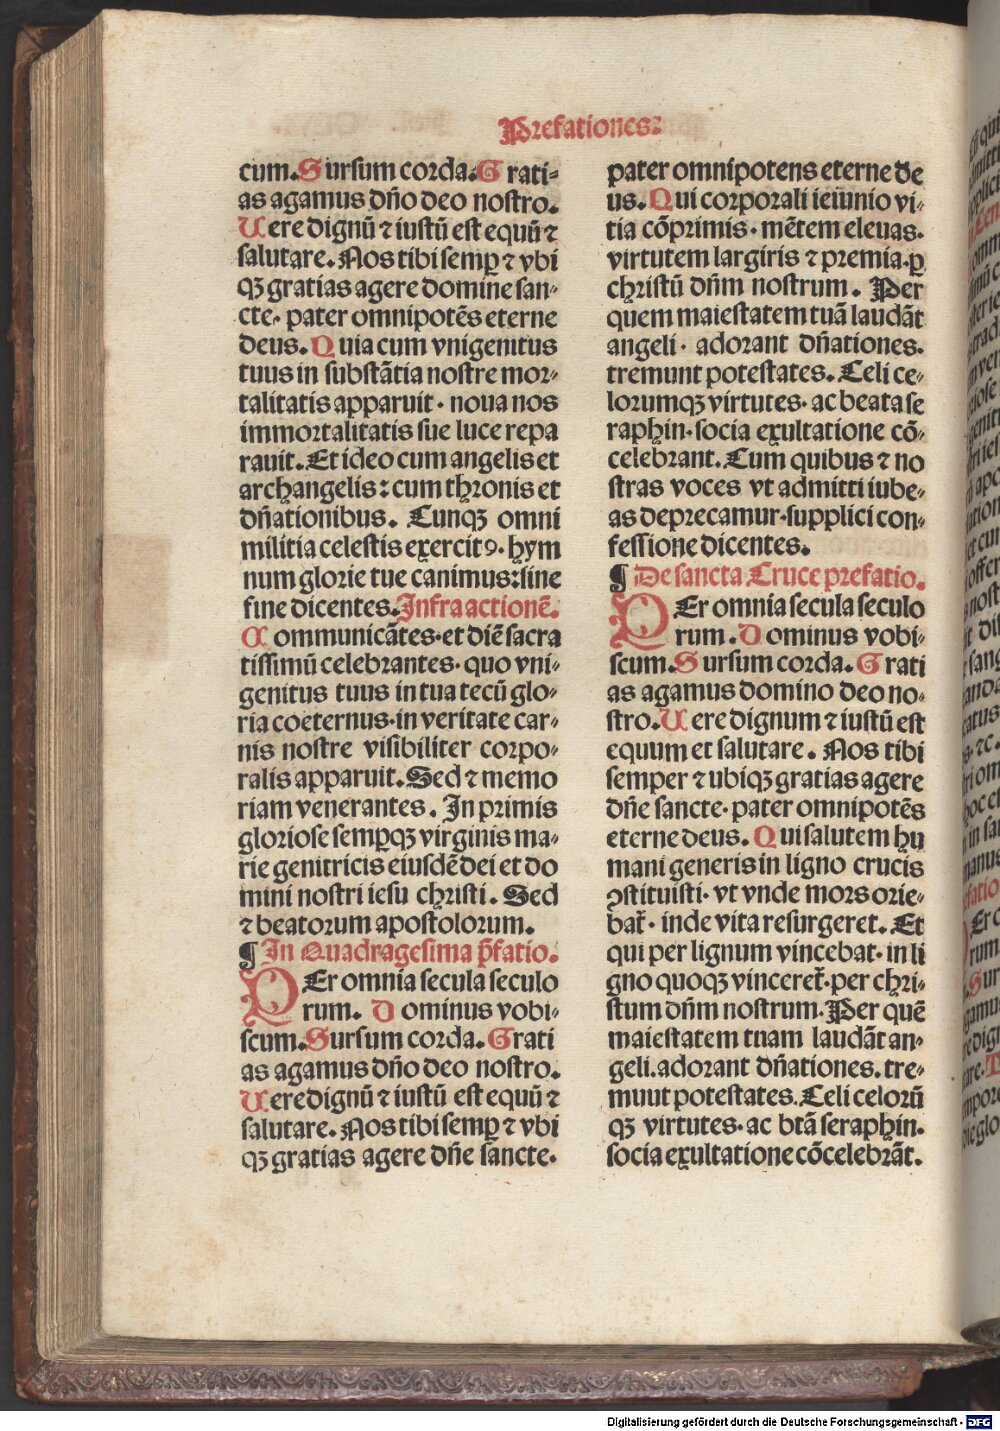 Prefationes:
cum. Sursum corda. Grati⸗
as agamus dño deo nostro.
Uere dignū ⁊ iustū est equū ⁊
salutare. Nos tibi semꝑ ⁊ vbi
qꝫ gratias agere domine san⸗
cte· pater omnipotēs eterne
deus. Quia cum vnigenitus
tuus in substātia nostre mor⸗
talitatis apparuit· noua nos
immortalitatis sue luce repa
rauit. Et ideo cum angelis et
archangelis: cum thronis et
dñationibus. Cunqꝫ omni
militia celestis exercitꝰ. hym
num glorie tue canimus: sine
fine dicentes. Infra actionē.
Communicātes· et diē sacra
tissimū celebrantes· quo vni⸗
genitus tuus in tua tecū glo⸗
ria coeternus· in veritate car⸗
nis nostre visibiliter corpo⸗
ralis apparuit. Sed ⁊ memo
riam venerantes. In primis
gloriose sempqꝫ virginis ma⸗
rie genitricis eiusdē dei et do
mini nostri iesu christi. Sed
⁊ beatorum apostolorum.
¶ In Quadragesima p̄fatio.
PEr omnia secula seculo
rum. Dominus vobi⸗
scum. Sursum corda. Grati
as agamus dño deo nostro.
Uere dignū ⁊ iustū est equū ⁊
salutare. Nos tibi semꝑ ⁊ vbi
qꝫ gratias agere dñe sancte·
pater omnipotens eterne de
us. Qui corporali ieiunio vi⸗
tia cōprimis· mētem eleuas.
virtutem largiris ⁊ premia. ꝑ
christū dñm nostrum. Per
quem maiestatem tuā laudāt
angeli· adorant dñationes.
tremunt potestates. Celi ce⸗
lorumqꝫ virtutes· ac beata se
raphin· socia exultatione cō⸗
celebrant. Cum quibus ⁊ no
stras voces vt admitti iube⸗
as deprecamur· supplici con⸗
fessione dicentes.
¶ De sancta Cruce prefatio.
PEr omnia secula seculo
rum. Dominus vobi⸗
scum. Sursum corda. Grati
as agamus domino deo no⸗
stro. Uere dignum ⁊ iustū est
equum et salutare. Nos tibi
semper ⁊ ubiqꝫ gratias agere
dñe sancte· pater omnipotēs
eterne deus. Qui salutem hu
mani generis in ligno crucis
ꝯstituisti· vt vnde mors orie⸗
bat̄· inde vita resurgeret. Et
qui per lignum vincebat· in li
gno quoqꝫ vinceret̄· per chri⸗
stum dñm nostrum. Per quē
maiestatem tnam laudāt an⸗
geli. adorant dñationes. tre⸗
muut potestates. Celi celorū
qꝫ virtutes· ac btā seraphin.
socia exultatione cōcelebrāt.
Digitalisierung gefördert durch die Deutsche Forschungsgemeinschaft · DFG